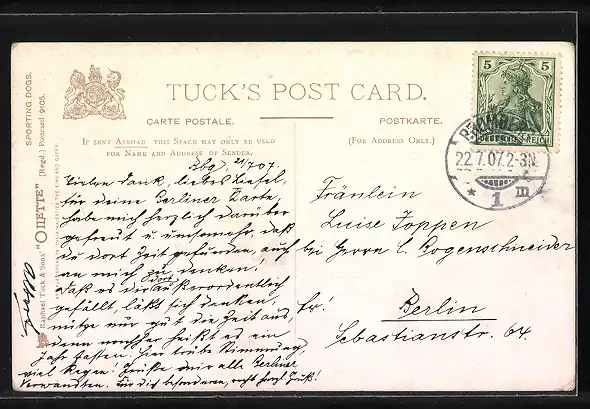 TUCK'S POST CARD.
CARTE POSTALE.
POSTKARTE.
IF SENT ABROAD THIS SPACE MAY ONLY BE USED
FOR NAME AND ADDRESS OF SENDER.
(FOR ADDRESS ONLY.)
SPORTING DOGS.
Raphael Tuck & Sons' "OILETTE" [Regd.] Postcard 9105.
5 5
DEUTSCHES REICH
22.7.07.2-3N.
* 1 m
Bbg 21/7 07.
Vielen Dank, liebes Liesel,
für deine Berliner Karte,
habe mich herzlich darüber
gefreut u umsomehr, daß
du dort Zeit gefunden, auch
an mich zu denken!
daß es dir dort außerordentlich
gefällt, läßt sich denken,
nütze nur gut die Zeit aus,
denn nachher heißt es ein
Jahr fasten. Hier trübe Stimmung,
viel Regen! Grüße mir alle Berliner
Verwandten. Für dich besonderen, recht herzl. Gruß!
Fräulein
Luise Joppen
bei Herrn C. Rogenschneider
Fr!
Berlin
Sebastianstr. 64.